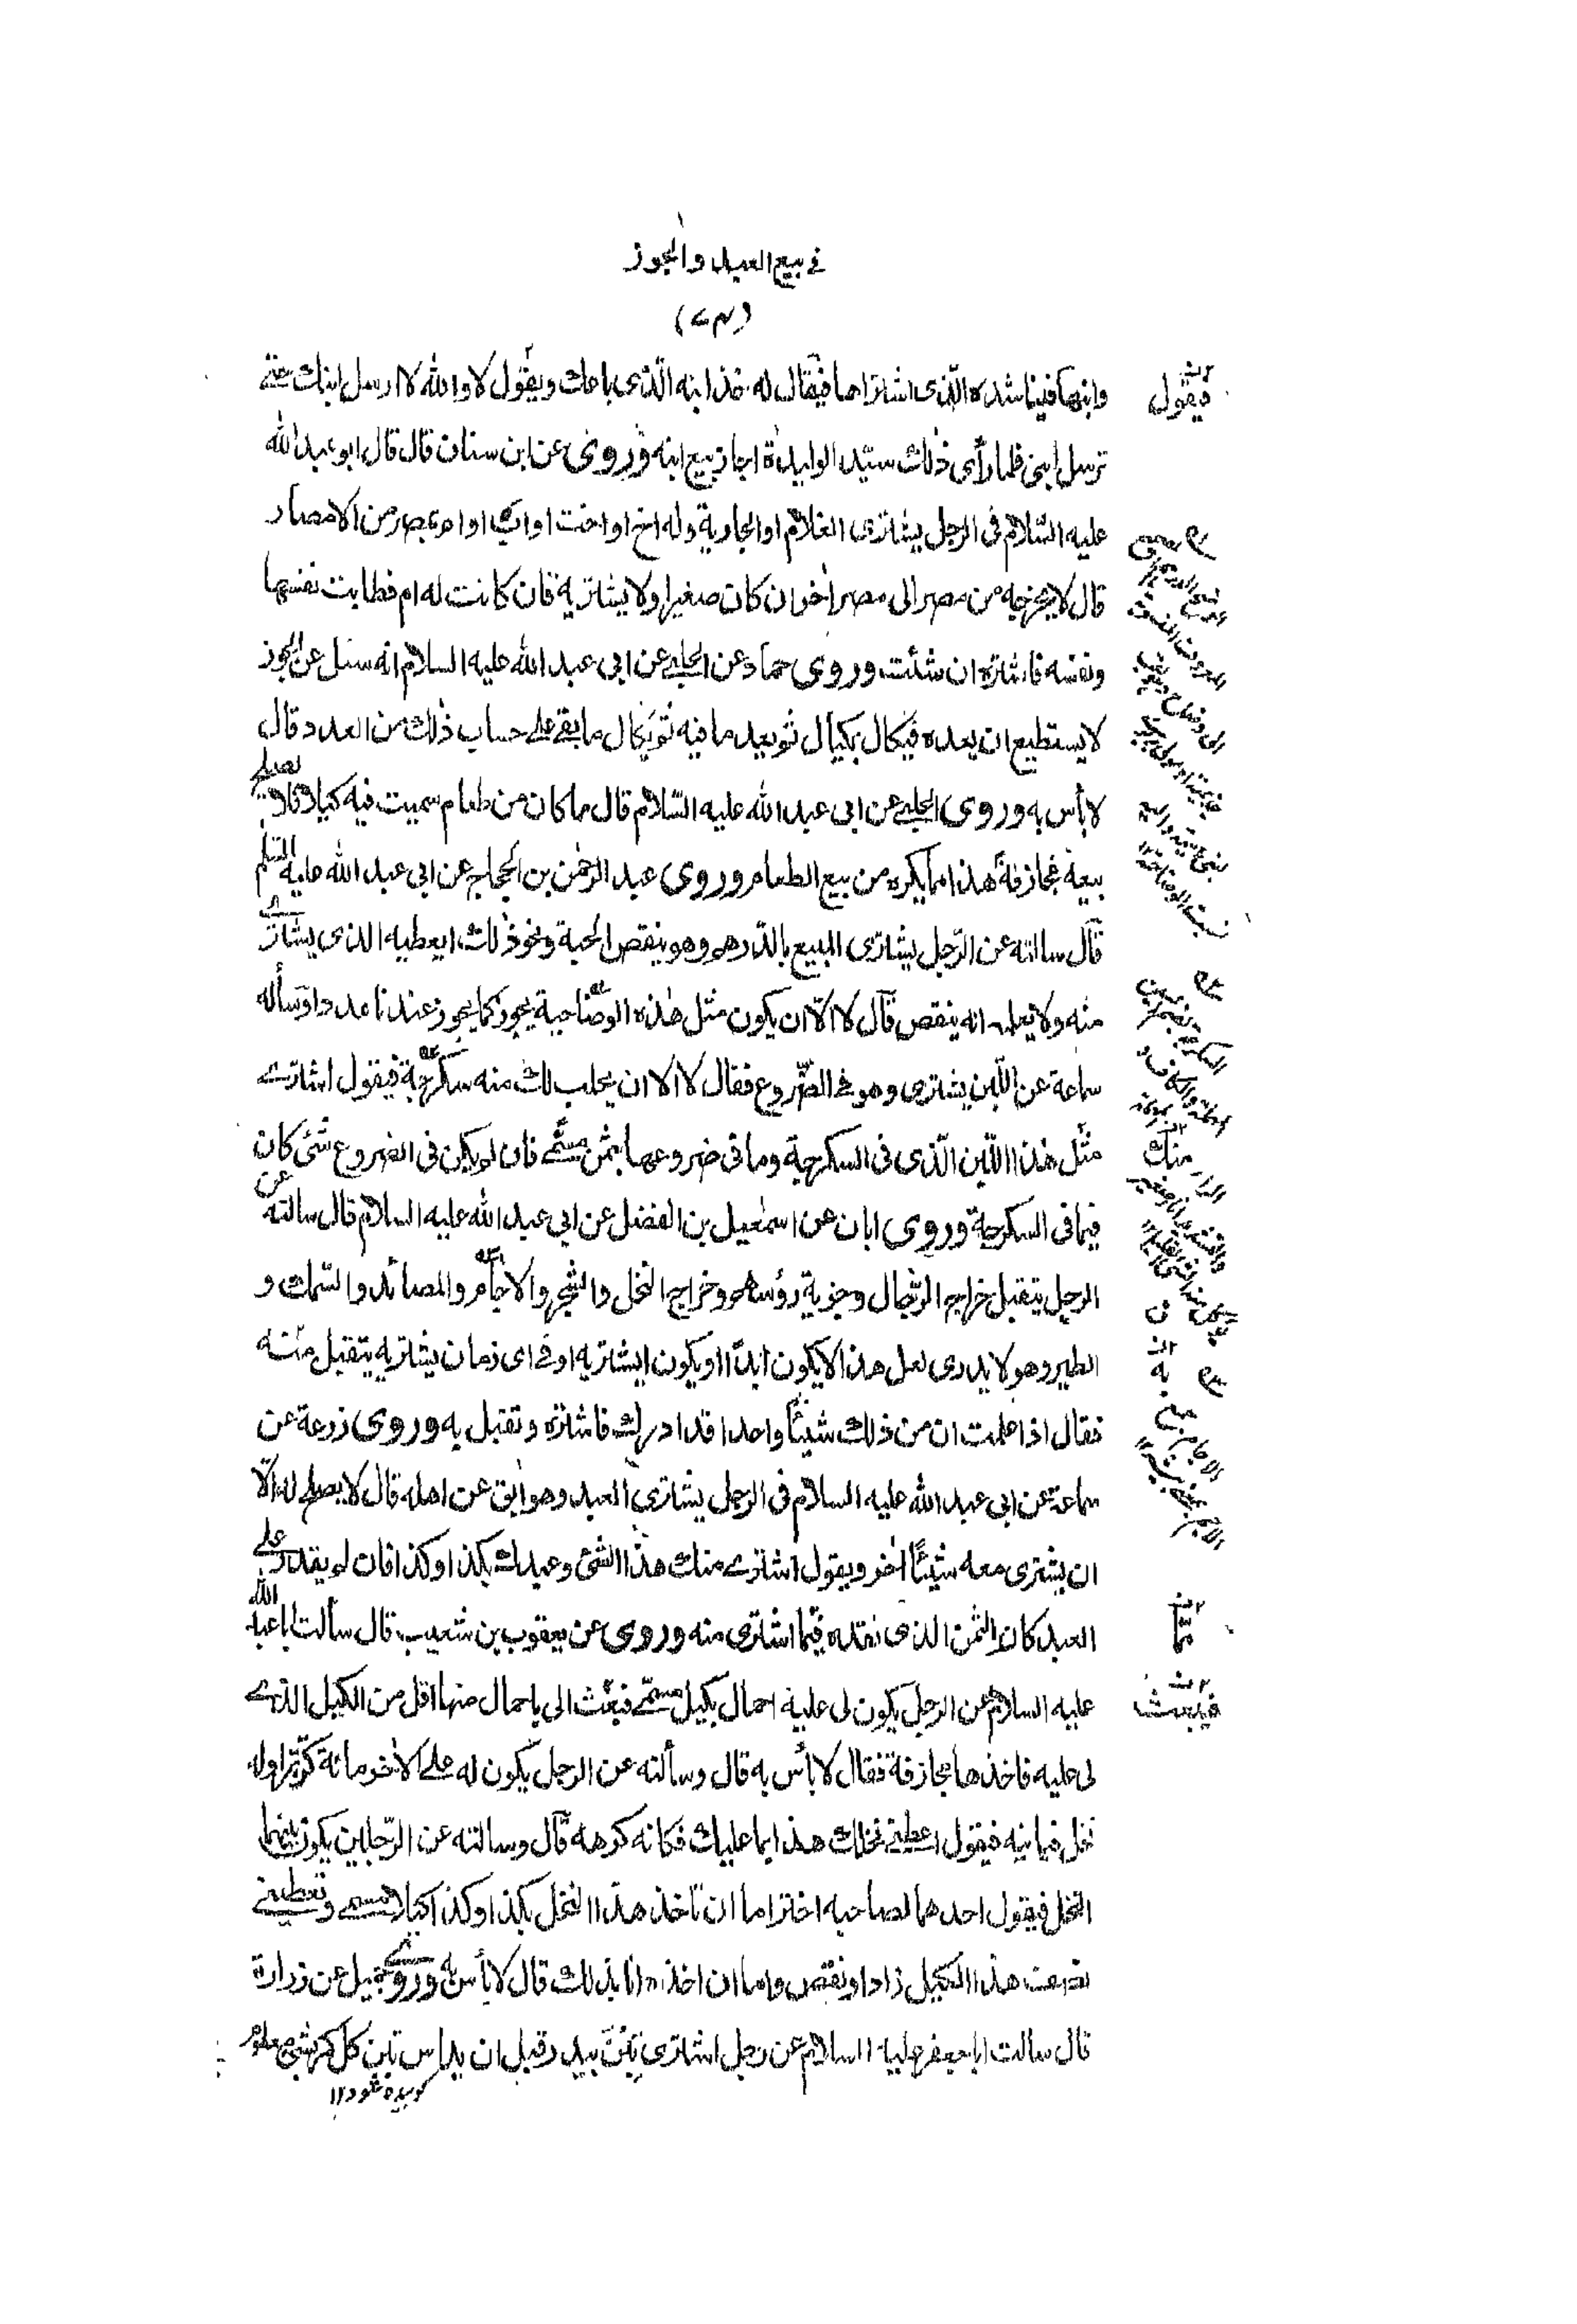 في بيع العبيد والجوز
(٧٤)
وابنها فيناشده الّذي اشتراها فيقال له خذ ابنه الّذي باعك ويقول لا والله لا ارسل ابنك حتى
ترسل ابني فلما رأى ذلك سيّد الوليدة اجاز بيع ابنه وروى عن ابن سنان قال قال ابو عبد الله
عليه السّلام في الرجل يشترى الغلام او الجارية وله اخ او اخت او اب او ام بمصر من الامصار
قال لا يخرجه من مصر الى مصر اخر ان كان صغيرا ولا يشتريه فان كانت له ام فطابت نفسها
ونفسه فاشتره ان شئت وروى حماد عن الحلبي عن ابي عبد الله عليه السلام انه سئل عن الجوز
لا يستطيع ان يعده فيكال بمكيال ثم يعد ما فيه ثم يكال ما بقي على حساب ذلك من العدد قال
لا بأس به وروى الحلبي عن ابي عبد الله عليه السّلام قال ما كان من طعام سميت فيه كيلا فلا يصلح
بيعه مجازفة هذا مما يكره من بيع الطعام وروى عبد الرحمن بن الحجاج عن ابي عبد الله عليه السّلام
قال سالته عن الرّجل يشترى المبيع بالدّرهم وهو ينقص الحبة ونحو ذلك ايعطيه الذي يشتريه
منه ولا يعلمه انه ينقص قال لا الّا ان يكون مثل هذه الوضاحية يجوز كما يجوز عندنا عددا وسأله
سماعة عن اللّبن يشترى وهو في الضّروع فقال لا الا ان يحلب لك منه سكرجة فيقول اشترى
مثل هذا اللّبن الّذي في السكرجة وما في ضروعها بثمن مسمّى فان لم يكن في الضروع شئ كان
فيما في السكرجة وروى ابان عن اسمعيل بن الفضل عن ابي عبد الله عليه السلام قال سالته عن
الرجل يتقبل خراج الرّجال وجزية رؤسهم وخراج النخل والشجر والاجام والمصائد والسّمك و
الطير وهو لا يدرى لعل هذا لا يكون ابدًا او يكون ايشتريه او في اى زمان يشتريه يتقبل منه
فقال اذا علمت ان من ذلك شيئًا واحدا قد ادرك فاشتره وتقبل به وروى زرعة عن
سماعة عن ابي عبد الله عليه السلام في الرجل يشترى العبد وهو ابق عن اهله قال لا يصلح له الّا
ان يشترى معه شيئًا اخر ويقول اشترى منك هذا الشئ وعبدك بكذا وكذا فان لم يقدر على
العبد كان الثمن الذي نقده فيما اشترى منه وروى عن يعقوب بن شعيب قال سألت ابا عبد الله
عليه السلام عن الرجل يكون لى عليه احمال بكيل مسمّى فبعث الى باحمال منها اقل من الكيل الذى
لى عليه فاخذها مجازفة فقال لا بأس به قال وسألته عن الرجل يكون له على الاخر مائة كر تمرا وله
نخل فياتيه فيقول اعطنى نخلك هذا بما عليك فكانه كرهه قال وسالته عن الرّجلين يكون بينهما
النخل فيقول احدهما لصاحبه اختر اما ان تأخذ هذا النخل بكذا وكذا كيلا مسمى وتعطينى
نصف هذا الكيل زاد او نقص واما ان اخذه انا بذلك قال لا بأس به وروى جميل عن زرارة
قال سالت ابا جعفر عليه السلام عن رجل اشترى تبن بيدر قبل ان يداس تبن كل كر بشئ معلوم
كوبيده شود ١٢
فيقول
منك
به
ممّا
فيبعث